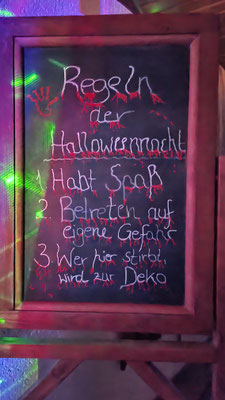 Regeln
der
Halloweennacht
1. Habt Spaß
2. Betreten auf
eigene Gefahr
3. Wer hier stirbt,
wird zur Deko